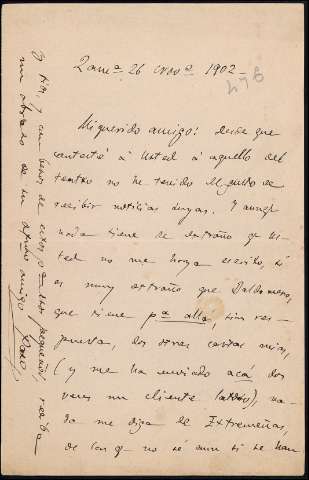 Zamª 26 Novᵉ 1902
Mi querido amigo: desde que
contesté á Usted á aquello del
teatro no he tenido el gusto de
recibir noticias suyas. Y aunqᵉ
nada tiene de extraño qᵉ Us-
ted no me haya escrito, sí
es muy extraño que Baldomero,
que tiene pª allá, sin res-
puesta, dos cartas mias,
(y me ha enviado acá dos
veces un cliente), na-
da me diga de Extremeñas,
de las qᵉ no sé aun si se han
y con besos de estos pequeños, reciba
un abrazo de su amigo